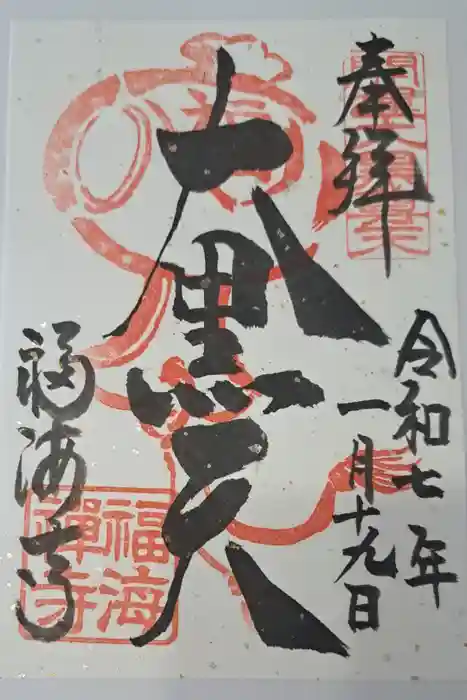 奉拝
令和七年
一月十九日
大黒天
福海寺
福海
禅寺